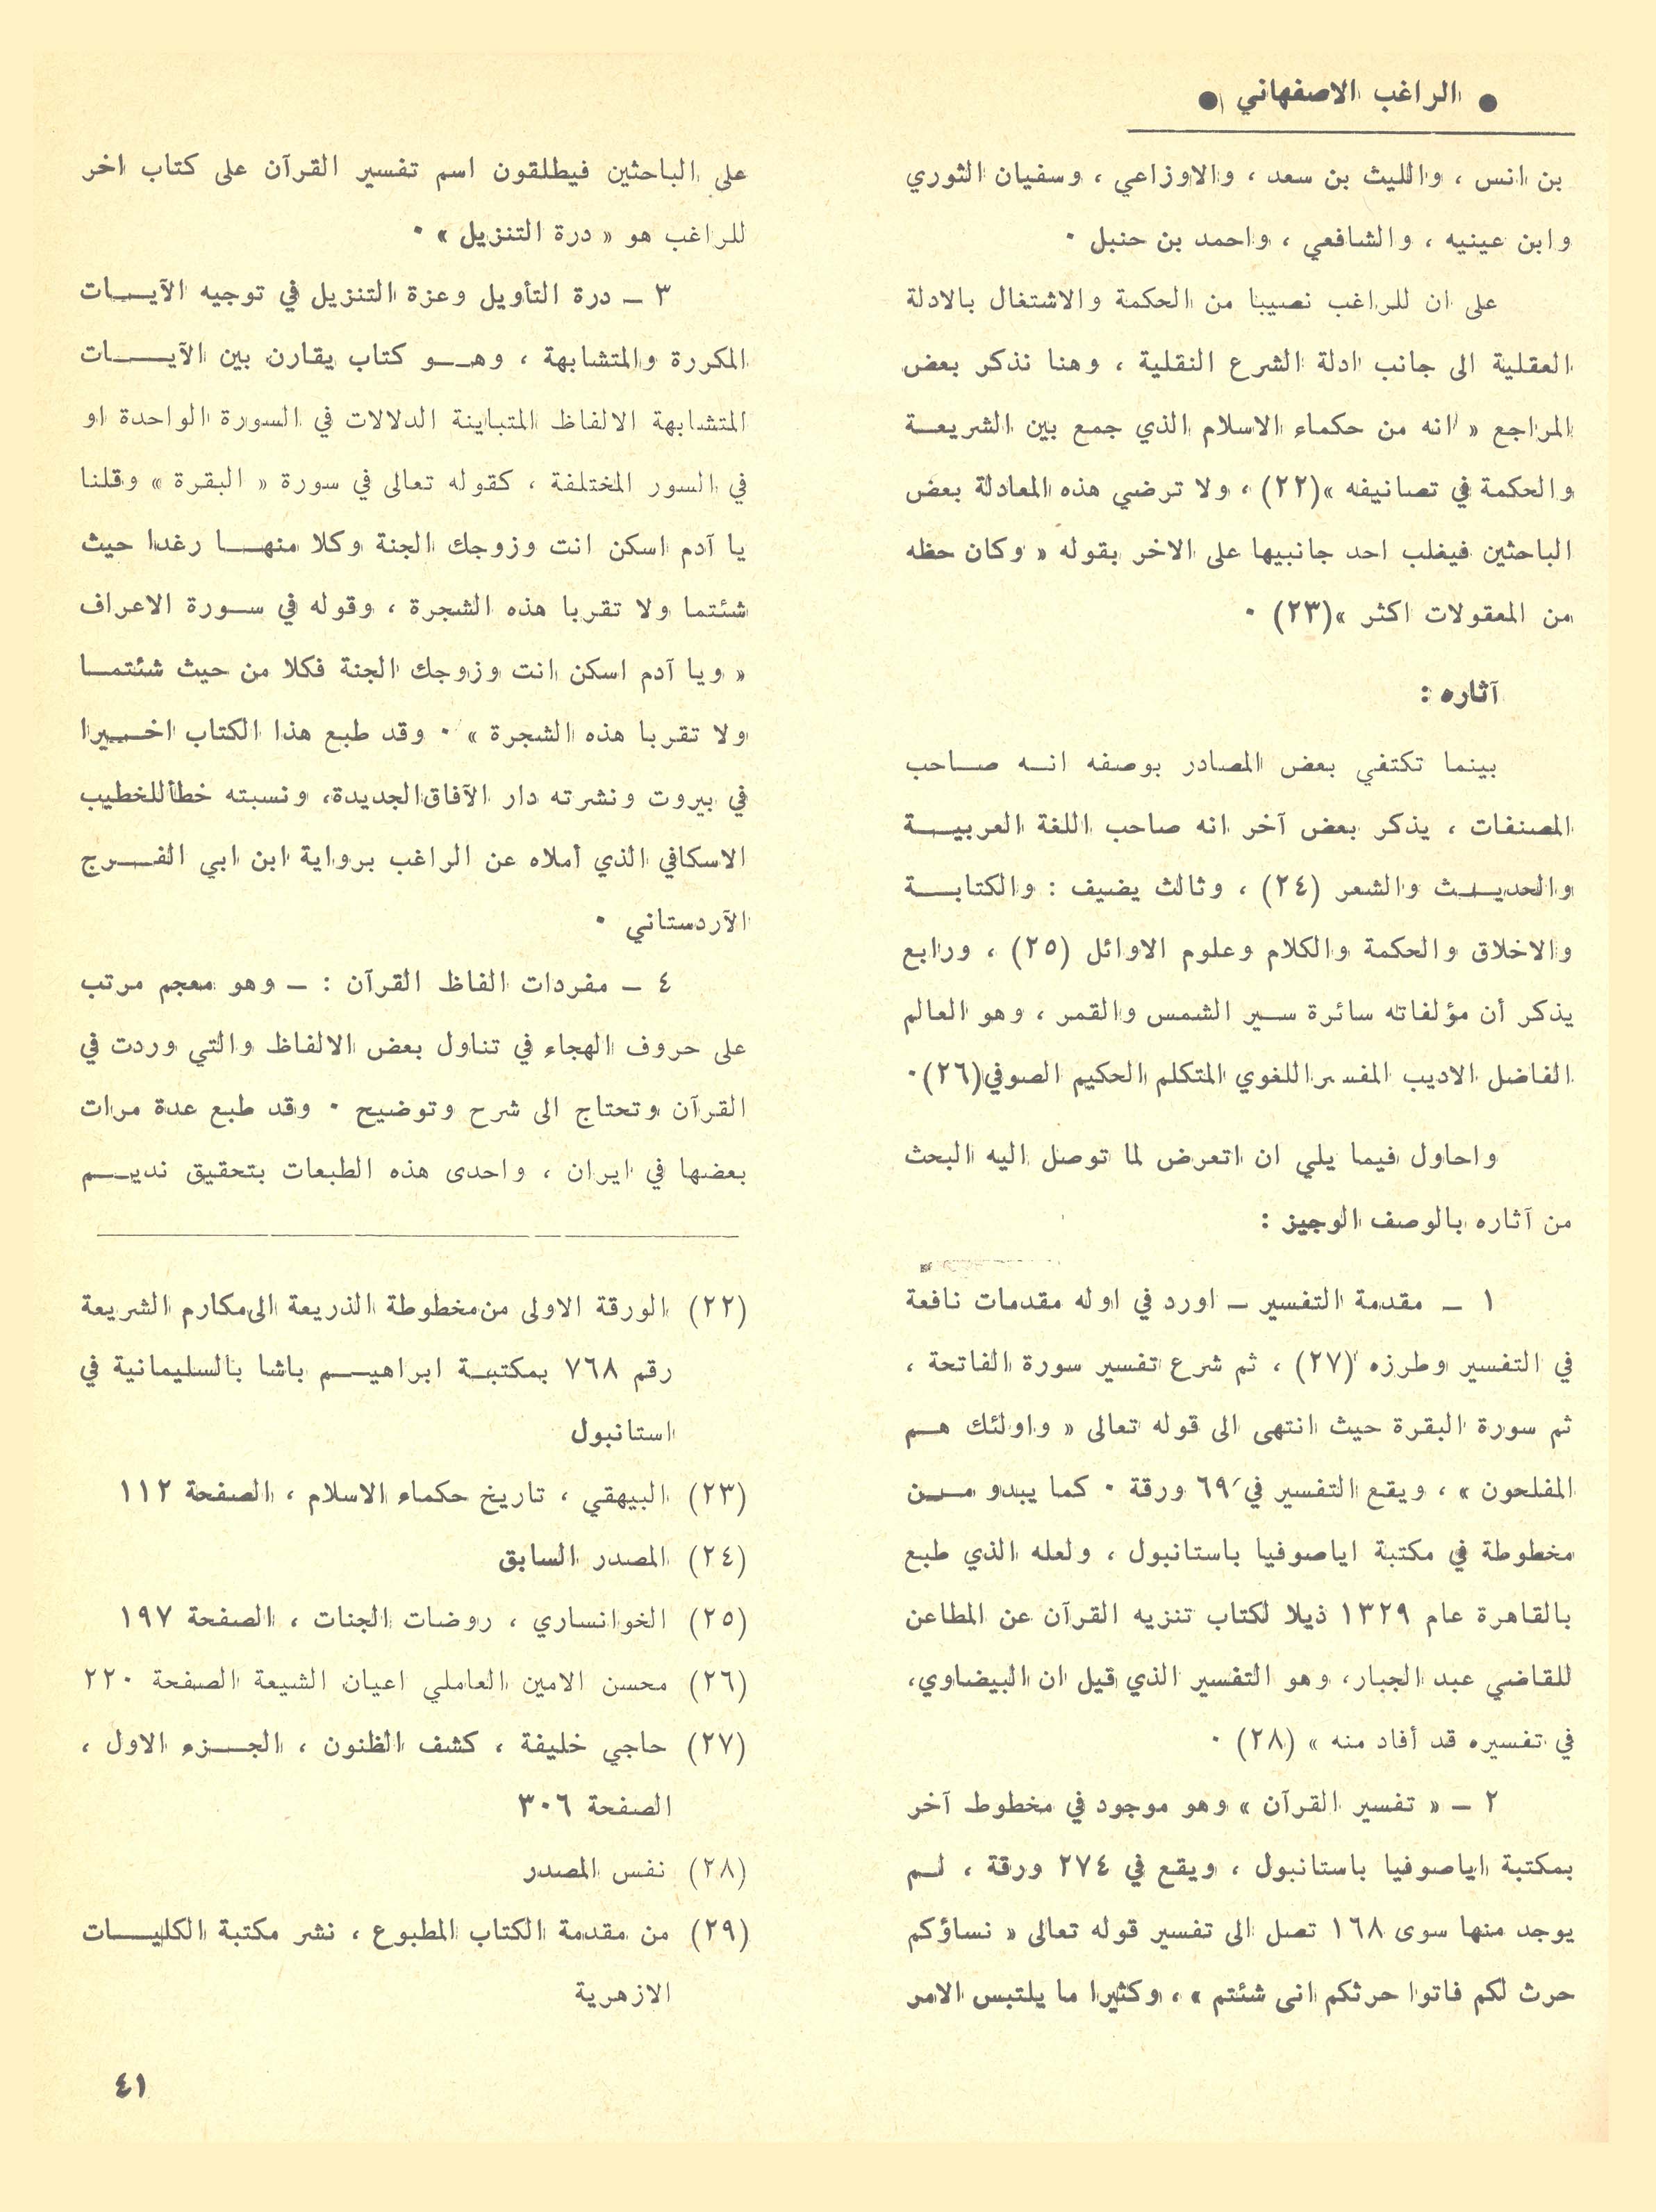 ● الراغب الاصفهاني ●
بن انس ، والليث بن سعد ، والاوزاعي ، وسفيان الثوري
وابن عينيه ، والشافعي ، واحمد بن حنبل ٠
على ان للراغب نصيبا من الحكمة والاشتغال بالادلة
العقلية الى جانب ادلة الشرع النقلية ، وهنا نذكر بعض
المراجع « انه من حكماء الاسلام الذي جمع بين الشريعة
والحكمة في تصانيفه »(٢٢) ، ولا ترضي هذه المعادلة بعض
الباحثين فيغلب احد جانبيها على الاخر بقوله « وكان حظه
من المعقولات اكثر »(٢٣) ٠
آثاره :
بينما تكتفي بعض المصادر بوصفه انه صاحب
المصنفات ، يذكر بعض آخر انه صاحب اللغة العربية
والحديث والشعر (٢٤) ، وثالث يضيف : والكتابة
والاخلاق والحكمة والكلام وعلوم الاوائل (٢٥) ، ورابع
يذكر أن مؤلفاته سائرة سير الشمس والقمر ، وهو العالم
الفاضل الاديب المفسر اللغوي المتكلم الحكيم الصوفي(٢٦)٠
واحاول فيما يلي ان اتعرض لما توصل اليه البحث
من آثاره بالوصف الوجيز :
١ ـ مقدمة التفسير ـ اورد في اوله مقدمات نافعة
في التفسير وطرزه (٢٧) ، ثم شرع تفسير سورة الفاتحة ،
ثم سورة البقرة حيث انتهى الى قوله تعالى « واولئك هم
المفلحون » ، ويقع التفسير في ٦٩ ورقة ٠ كما يبدو من
مخطوطة في مكتبة اياصوفيا باستانبول ، ولعله الذي طبع
بالقاهرة عام ١٣٢٩ ذيلا لكتاب تنزيه القرآن عن المطاعن
للقاضي عبد الجبار، وهو التفسير الذي قيل ان البيضاوي،
في تفسيره قد أفاد منه » (٢٨) ٠
٢ ـ « تفسير القرآن » وهو موجود في مخطوط آخر
بمكتبة اياصوفيا باستانبول ، ويقع في ٢٧٤ ورقة ، لم
يوجد منها سوى ١٦٨ تصل الى تفسير قوله تعالى « نساؤكم
حرث لكم فاتوا حرثكم انى شئتم » ، وكثيرا ما يلتبس الامر
على الباحثين فيطلقون اسم تفسير القرآن على كتاب اخر
للراغب هو « درة التنزيل » ٠
٣ ـ درة التأويل وعزة التنزيل في توجيه الآيات
المكررة والمتشابهة ، وهو كتاب يقارن بين الآيات
المتشابهة الالفاظ المتباينة الدلالات في السورة الواحدة او
في السور المختلفة ، كقوله تعالى في سورة « البقرة » وقلنا
يا آدم اسكن انت وزوجك الجنة وكلا منها رغدا حيث
شئتما ولا تقربا هذه الشجرة ، وقوله في سورة الاعراف
« ويا آدم اسكن انت وزوجك الجنة فكلا من حيث شئتما
ولا تقربا هذه الشجرة » ٠ وقد طبع هذا الكتاب اخيرا
في بيروت ونشرته دار الآفاق الجديدة، ونسبته خطأ للخطيب
الاسكافي الذي أملاه عن الراغب برواية ابن ابي الفرج
الآردستاني ٠
٤ ـ مفردات الفاظ القرآن : ـ وهو معجم مرتب
على حروف الهجاء في تناول بعض الالفاظ والتي وردت في
القرآن وتحتاج الى شرح وتوضيح ٠ وقد طبع عدة مرات
بعضها في ايران ، واحدى هذه الطبعات بتحقيق نديم
(٢٢) الورقة الاولى من مخطوطة الذريعة الى مكارم الشريعة
رقم ٧٦٨ بمكتبة ابراهيم باشا بالسليمانية في
استانبول
(٢٣) البيهقي ، تاريخ حكماء الاسلام ، الصفحة ١١٢
(٢٤) المصدر السابق
(٢٥) الخوانساري ، روضات الجنات ، الصفحة ١٩٧
(٢٦) محسن الامين العاملي اعيان الشيعة الصفحة ٢٢٠
(٢٧) حاجي خليفة ، كشف الظنون ، الجزء الاول ،
الصفحة ٣٠٦
(٢٨) نفس المصدر
(٢٩) من مقدمة الكتاب المطبوع ، نشر مكتبة الكليات
الازهرية
٤١